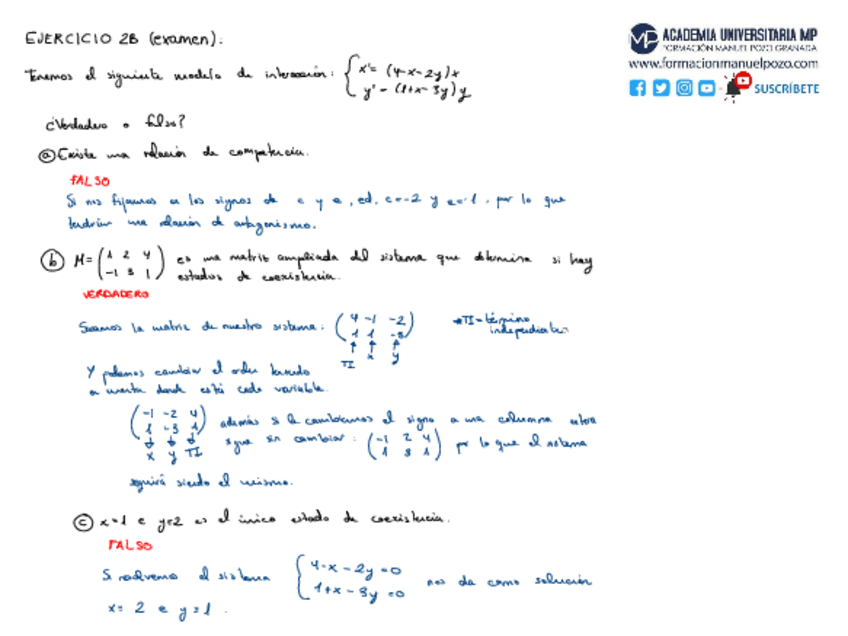 EJERCICIO 2B (examen).
Tenemos el siguiente modelo de interacción: { x' = (4-x-2y)x
y' = (1+x-3y)y
¿Verdadero o falso?
ⓐ Existe una relación de competencia.
FALSO
Si nos fijamos en los signos de c y e, ed, c=-2 y e=1, por lo que
tendrían una relación de antagonismo.
ⓑ M = ( 1 2 4
-1 3 1 ) es una matriz ampliada del sistema que determina si hay
estados de coexistencia.
VERDADERO
Sacamos la matriz de nuestro sistema: ( 4 -1 -2
1 1 -3 ) *TI = término
independiente
TI x y
Y podemos cambiar el orden teniendo
en cuenta donde está cada variable.
( -1 -2 4
1 -3 1 ) además si le cambiamos el signo a una columna entera
x y TI
sigue sin cambiar: ( -1 2 4
1 3 1 ) por lo que el sistema
seguirá siendo el mismo.
ⓒ x=1 e y=2 es el único estado de coexistencia.
FALSO
Si resolvemos el sistema { 4-x-2y=0
1+x-3y=0 nos da como solución
x= 2 e y=1.
MP ACADEMIA UNIVERSITARIA MP
FORMACIÓN MANUEL POZO GRANADA
www.formacionmanuelpozo.com
SUSCRÍBETE